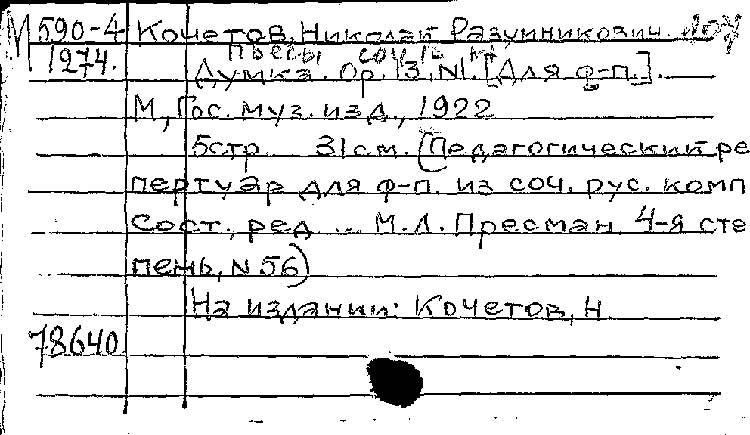 М 590-4 Кочетов, Николай Разумникович
1974. Пьесы соч.
Думка. Ор. 13, N1. [Для ф-п.].
М, Гос. муз. изд., 1922
5стр. 31см. (Педагогический ре
пертуар для ф-п. из соч. рус. комп
Сост., ред ... М.Л. Пресман. 4-я сте
пень, N 56)
На издании: Кочетов, Н
78640